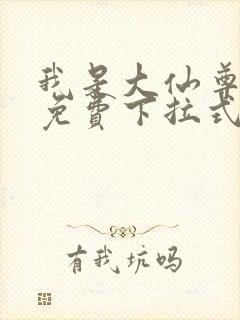 我是大仙尊
免费下拉式
有我坑吗